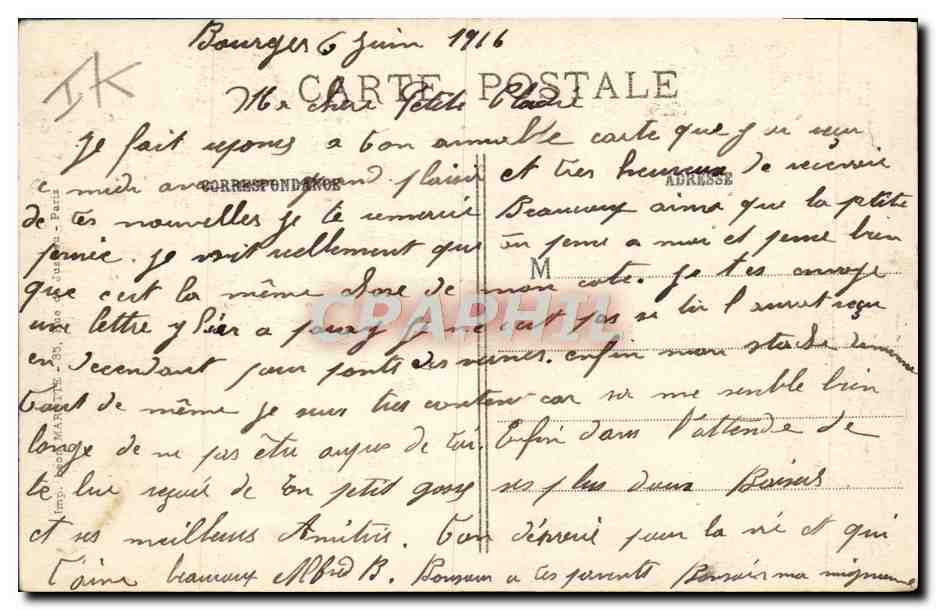 Bourges 6 Juin 1916
CARTE POSTALE
Ma chère Petite
Je fait réponse a ton aimable carte que j'ai reçu
ce midi avec grand plaisir et tres heureux de recevoir
CORRESPONDANCE
ADRESSE
de tes nouvelles je te remercie Beaucoup ainsi que la ptite
pensée. Je voit reellement que tu pense a moi et pense bien
M
que c'est la même chose de mon coté. Je t'es envoyé
une lettre hier a je ne sait pas si tu l'aurat reçu
CPARAMA CRAPHIL
en decendant pour enfin mon
tout de même je suis tres content car sa me semble bien
longe de ne pas être aupres de toi. Enfin dans l'attende de
te lire reçoit de ton petit gosse ses plus doux Baisers
et ses meilleurs Amitiés. Ton pour la vie et qui
t'aime beaucoup Alfred B. Bonsoir a tes parents Bonsoir ma mignonne
Paris